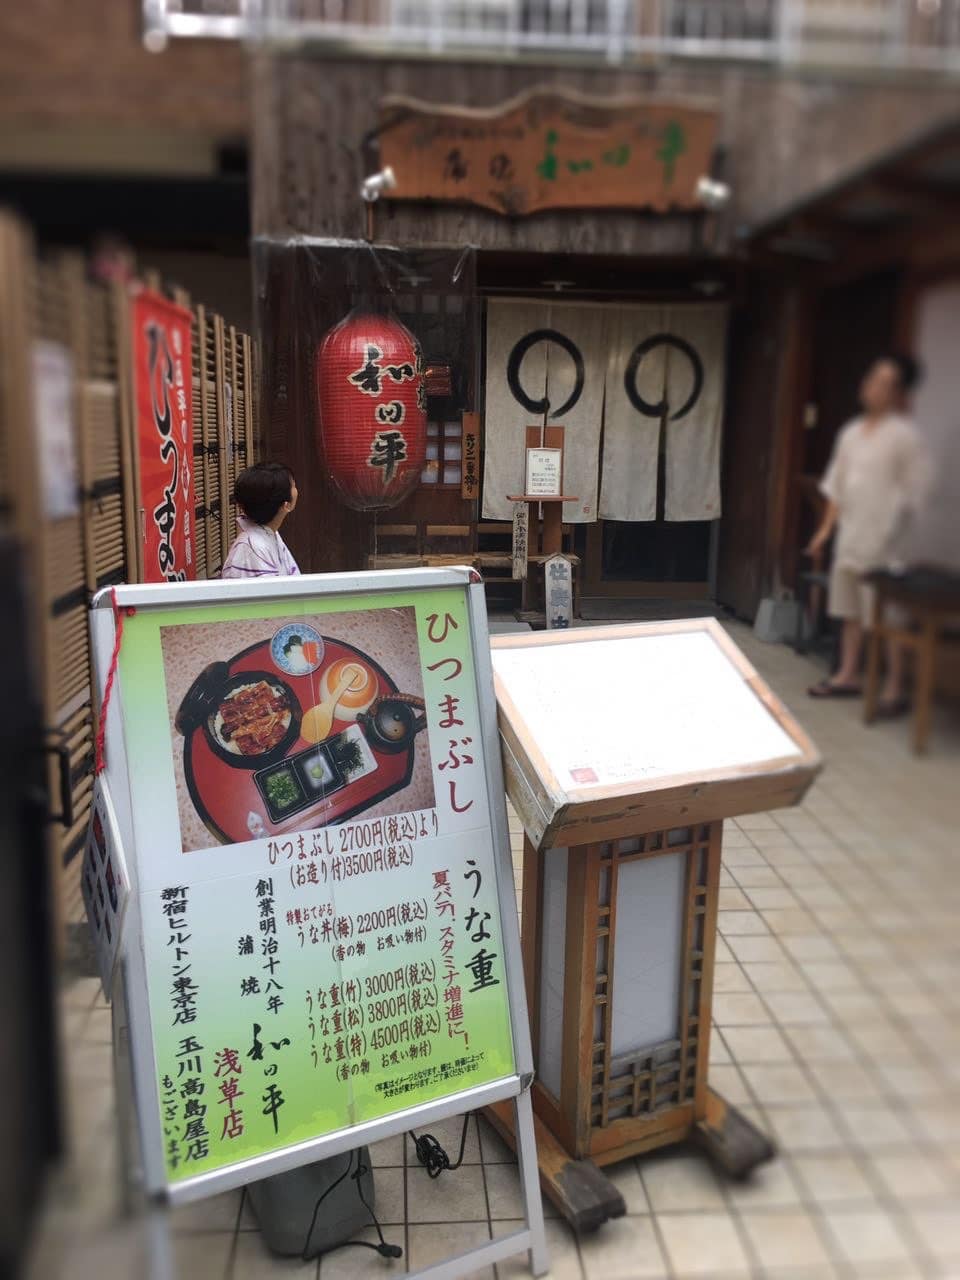 蒲焼 和田平
和田平
ひつまぶ
キリン一番搾り
ひつまぶし
ひつまぶし 2700円(税込)より
(お造り付)3500円(税込)
うな重
夏バテ!スタミナ増進に!
特製おてがる
うな丼(梅) 2200円(税込)
(香の物 お吸い物付)
うな重(竹) 3000円(税込)
うな重(松) 3800円(税込)
うな重(特) 4500円(税込)
(香の物 お吸い物付)
(写真はイメージとなります。鰻は、時価によって
大きさが変わります。ご了承くださいませ)
創業明治十八年
蒲焼 和田平
浅草店
新宿ヒルトン東京店 玉川高島屋店
もございます